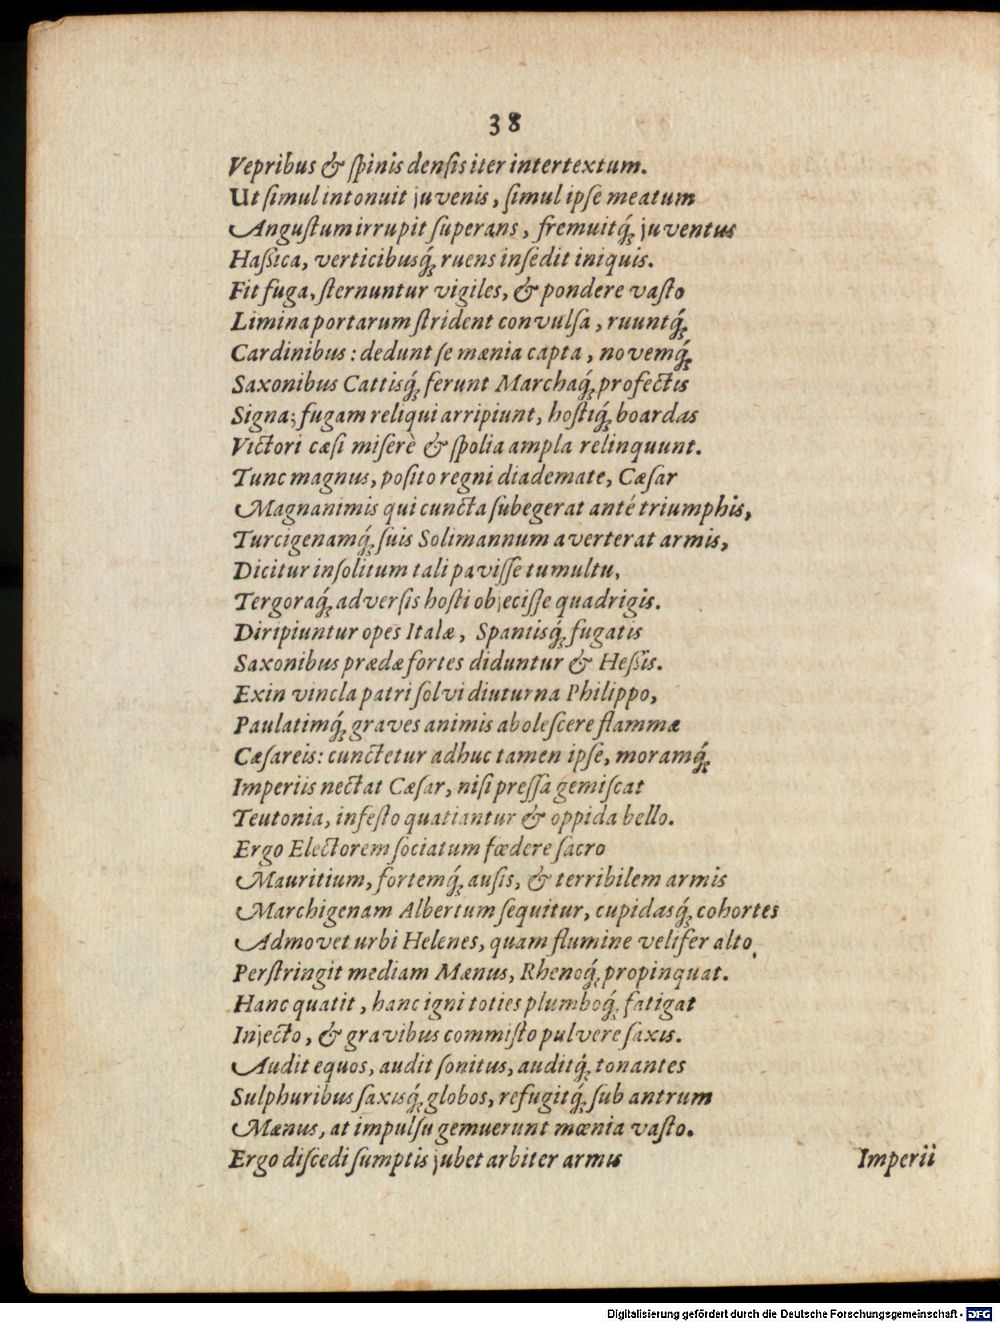 38
Vepribus & ſpinis denſis iter intertextum.
Ut ſimul intonuit juvenis, ſimul ipſe meatum
Anguſtum irrupit ſuperans, fremuitq́; juventus
Haſsica, verticibusq́; ruens inſedit iniquis.
Fit fuga, ſternuntur vigiles, & pondere vaſto
Limina portarum ſtrident convulſa, ruuntq́;
Cardinibus: dedunt ſe mænia capta, novemq́;
Saxonibus Cattisq́; ferunt Marchaq́; profectis
Signa; fugam reliqui arripiunt, hoſtiq́; boardas
Victori cæſi miſerè & ſpolia ampla relinquunt.
Tunc magnus, poſito regni diademate, Cæſar
Magnanimis qui cuncta ſubegerat anté triumphis,
Turcigenamq́; ſuis Solimannum averterat armis,
Dicitur inſolitum tali paviſſe tumultu,
Tergoraq́; adverſis hoſti objeciſſe quadrigis.
Diripiuntur opes Italæ, Spanisq́; fugatis
Saxonibus prædæ fortes diduntur & Heſsis.
Exin vincla patri ſolvi diuturna Philippo,
Paulatimq́; graves animis aboleſcere flammæ
Cæſareis: cunctetur adhuc tamen ipſe, moramq́;
Imperiis nectat Cæſar, niſi preſſa gemiſcat
Teutonia, infeſto quatiantur & oppida bello.
Ergo Electorem ſociatum fœdere ſacro
Mauritium, fortemq́; auſis, & terribilem armis
Marchigenam Albertum ſequitur, cupidasq́; cohortes
Admovet urbi Helenes, quam flumine velifer alto,
Perſtringit mediam Mænus, Rhenoq́; propinquat.
Hanc quatit, hanc igni toties plumboq́; fatigat
Injecto, & gravibus commiſto pulvere ſaxis.
Audit equos, audit ſonitus, auditq́; tonantes
Sulphuribus ſaxisq́; globos, refugitq́; ſub antrum
Mænus, at impulſu gemuerunt mœnia vaſto.
Ergo diſcedi ſumptis jubet arbiter armis Imperii
Digitalisierung gefördert durch die Deutsche Forschungsgemeinschaft - DFG